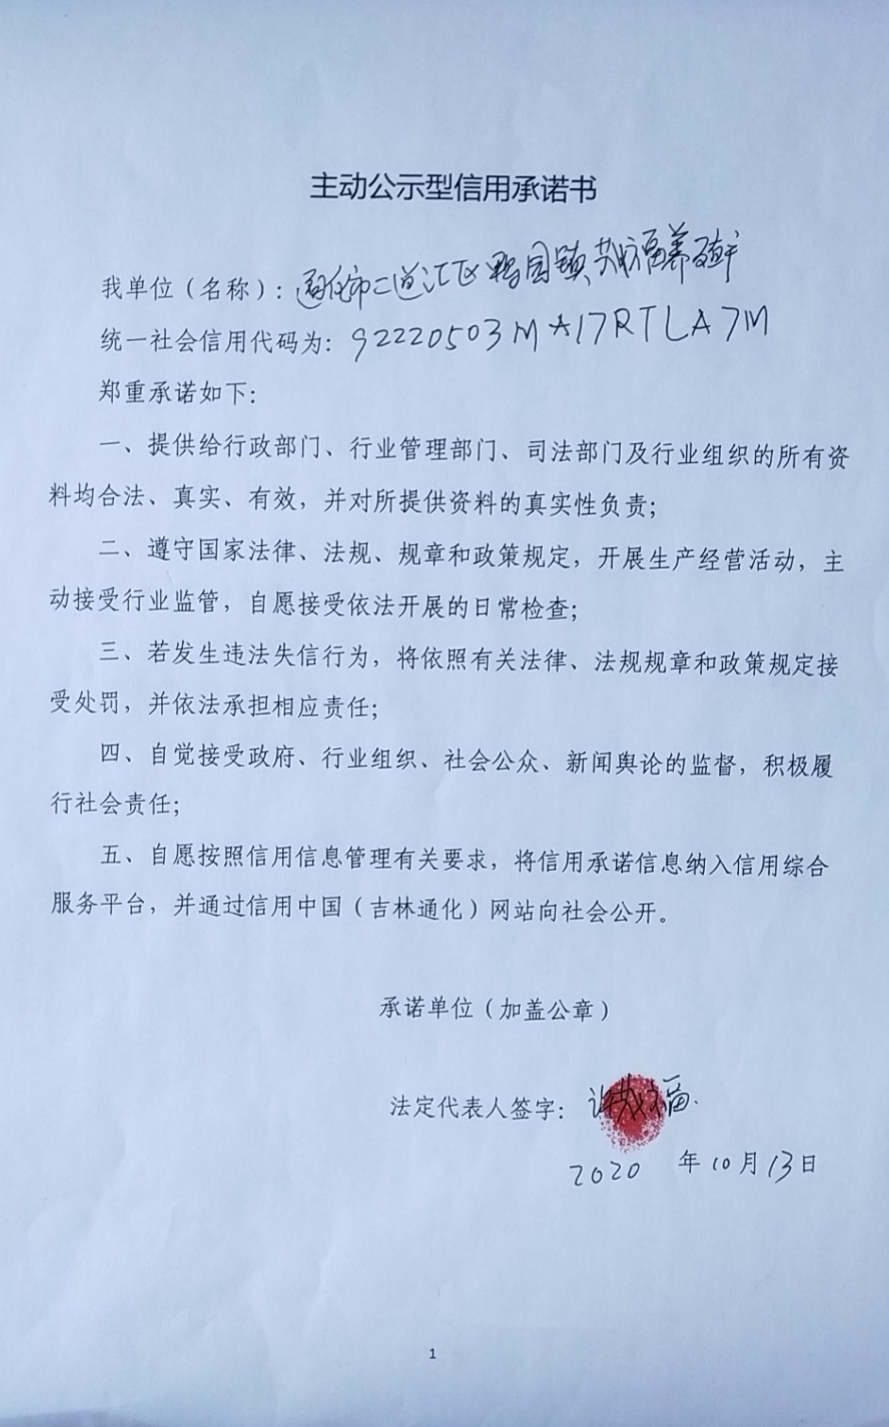 主动公示型信用承诺书
我单位（名称）：通化市二道江区鸭园镇福养殖户
统一社会信用代码为：92220503MA17RTLA7M
郑重承诺如下：
一、提供给行政部门、行业管理部门、司法部门及行业组织的所有资
料均合法、真实、有效，并对所提供资料的真实性负责；
二、遵守国家法律、法规、规章和政策规定，开展生产经营活动，主
动接受行业监管，自愿接受依法开展的日常检查；
三、若发生违法失信行为，将依照有关法律、法规规章和政策规定接
受处罚，并依法承担相应责任；
四、自觉接受政府、行业组织、社会公众、新闻舆论的监督，积极履
行社会责任；
五、自愿按照信用信息管理有关要求，将信用承诺信息纳入信用综合
服务平台，并通过信用中国（吉林通化）网站向社会公开。
承诺单位（加盖公章）
法定代表人签字：许福
2020 年10月13日
1